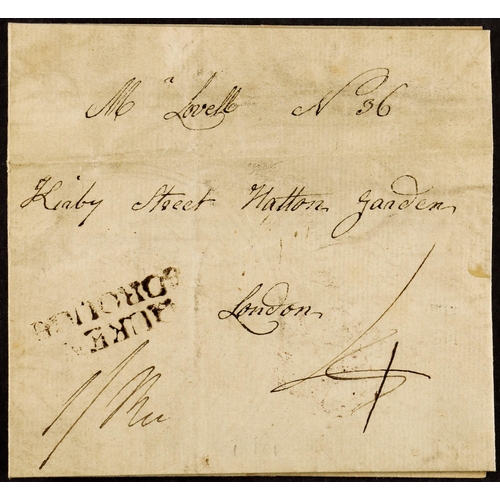 Mr Lovell No 36
Kirby Street Hatton Garden
London
4